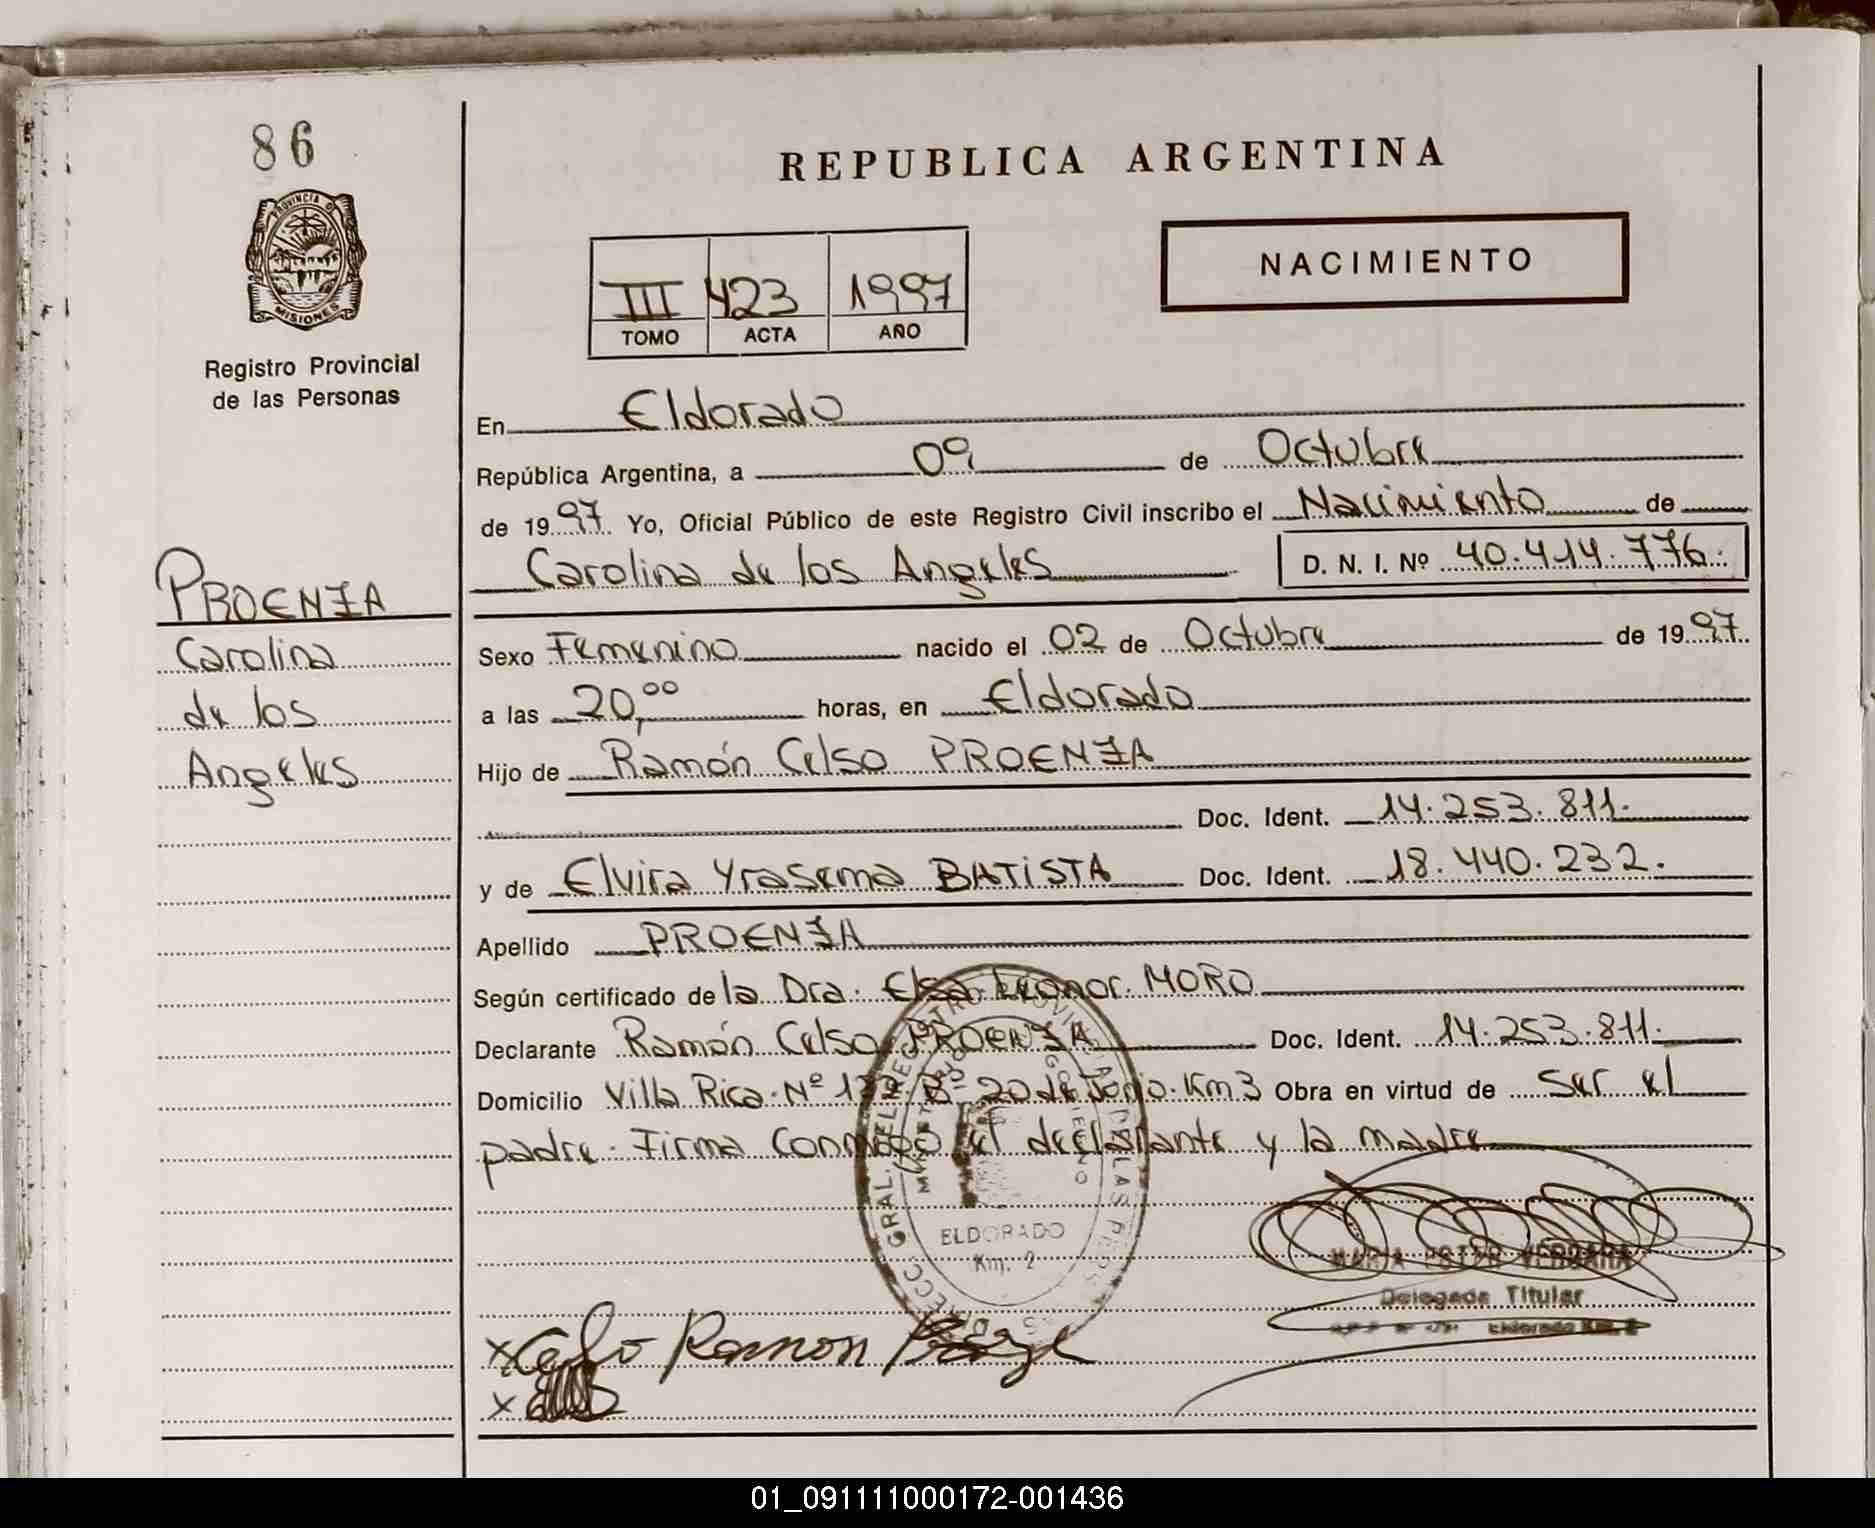 86
REPUBLICA ARGENTINA
PROVINCIA DE
MISIONES
NACIMIENTO
III 423 1997
TOMO ACTA AÑO
Registro Provincial
de las Personas
En Eldorado
República Argentina, a 09 de Octubre
de 1997 Yo, Oficial Público de este Registro Civil inscribo el Nacimiento de
Carolina de los Angeles D. N. I. Nº 40.414.776.
PROENZA
Carolina
de los
Angeles
Sexo Femenino nacido el 02 de Octubre de 1997
a las 20,00 horas, en Eldorado
Hijo de Ramón Celso PROENZA
Doc. Ident. 14.253.811.
y de Elvira Yrasema BATISTA Doc. Ident. 18.440.232.
Apellido PROENZA
Según certificado de la Dra. Elsa Leonor MORO
Declarante Ramón Celso PROENZA Doc. Ident. 14.253.811.
Domicilio Villa Rica Nº Bº 20 de Junio Km3 Obra en virtud de ser el
padre. Firma conmigo el declarante y la madre
ELDORADO
Km. 2
MARIA ESTER VERGARA
Delegada Titular
Eldorado Km. 2
x Celso Ramon
x
01_091111000172-001436